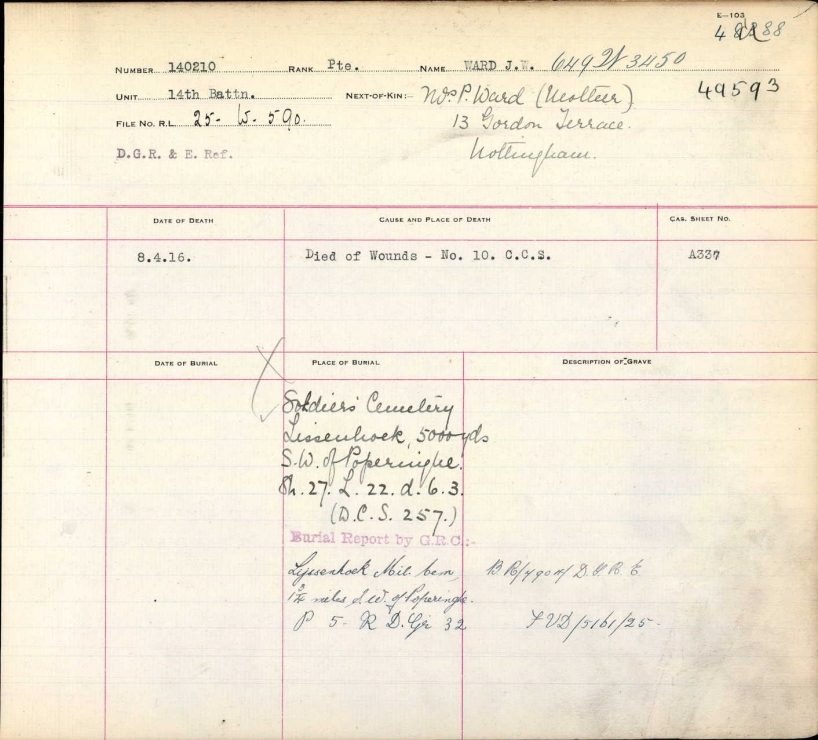 E—103
NUMBER 140210 RANK Pte. NAME WARD J.W. 649 W 3450
UNIT 14th Battn. NEXT-OF-KIN:— Mrs P. Ward (Mother) 49593
FILE NO. R.L. 25- W- 590. 13 Gordon Terrace.
D.G.R. & E. Ref. Nottingham.
DATE OF DEATH CAUSE AND PLACE OF DEATH CAS. SHEET NO.
8.4.16. Died of Wounds - No. 10. C.C.S. A337
DATE OF BURIAL PLACE OF BURIAL DESCRIPTION OF GRAVE
Soldiers' Cemetery
Lissenhoek, 5000 yds
S.W. of Poperinghe.
Sh. 27. L. 22. d. 6. 3.
(D.C.S. 257.)
Burial Report by G.R.C.:-
Lyssenhoek Mil. Cem, D.G.R.E.
miles S.W. of Poperinghe.
P 5- R D. Gr 32 /5161/25-